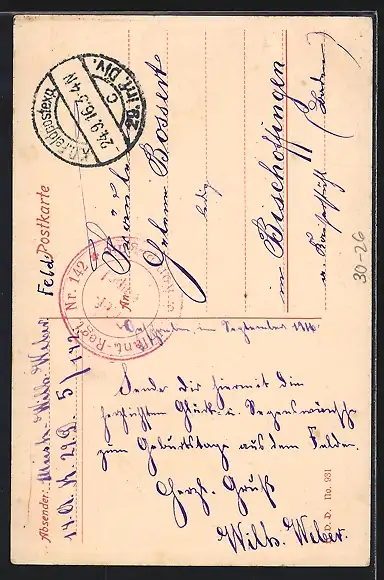 Feld Postkarte
Absender: Musk. Wilh. Weber
14. A. K. 29. D. 5/142
K.D. Feldpostexp.
24.9.16. 3-4 N
28. Inf. Div.
c
Infant.-Regt. Nr. 142
Fräulein
Bossert
ledig
in Bischoffingen
a. Kaiserstuhl (Baden)
30-26
im September 1916
Sende dir hiermit die
herzlichsten Glück- u. Segenswünsche
zum Geburtstage aus dem Felde.
Herzl. Gruß
Wilh. Weber.
D. D. No. 931